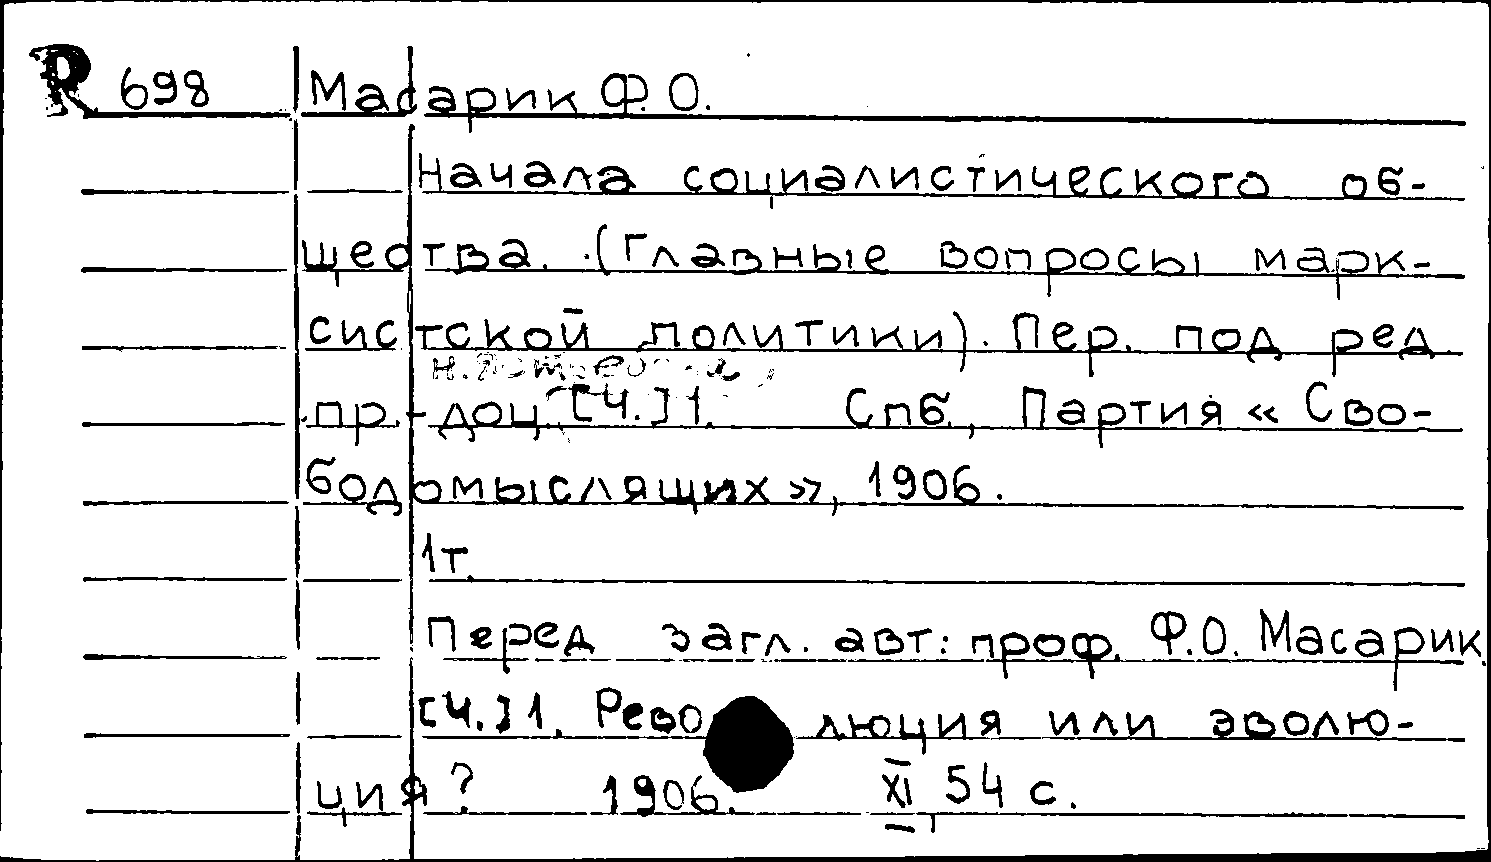 R 698 Масарик Ф.О.
Начала социалистического об-
щества. (Главные вопросы марк-
систской политики). Пер. под ред
Н.
пр.-доц. [Ч.] 1. Спб., Партия « Сво-
бодомыслящих», 1906.
1т.
Перед загл. авт: проф. Ф.О. Масарик.
[Ч.] 1. Революция или эволю-
ция? 1906. XI, 54 с.